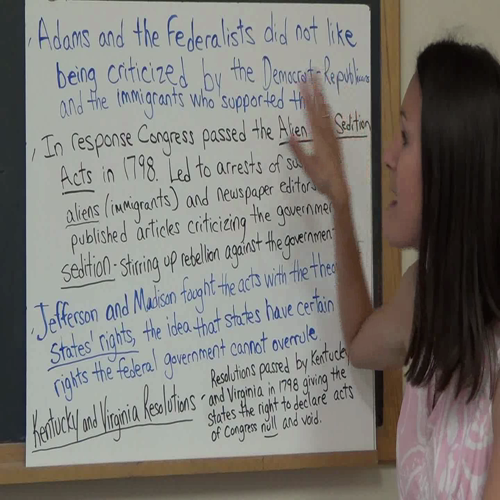 Adams and the Federalists did not like
being criticized by the Democrat-Republicans
and the immigrants who supported
In response Congress passed the Alien Sedition
Acts in 1798. Led to arrests of
aliens (immigrants) and newspaper editors
published articles criticizing the government
sedition - stirring up rebellion against the government
Jefferson and Madison fought the acts with the
States' rights, the idea that states have certain
rights the federal government cannot overrule.
Kentucky and Virginia Resolutions -
Resolutions passed by Kentucky
and Virginia in 1798 giving the
states the right to declare acts
of Congress null and void.